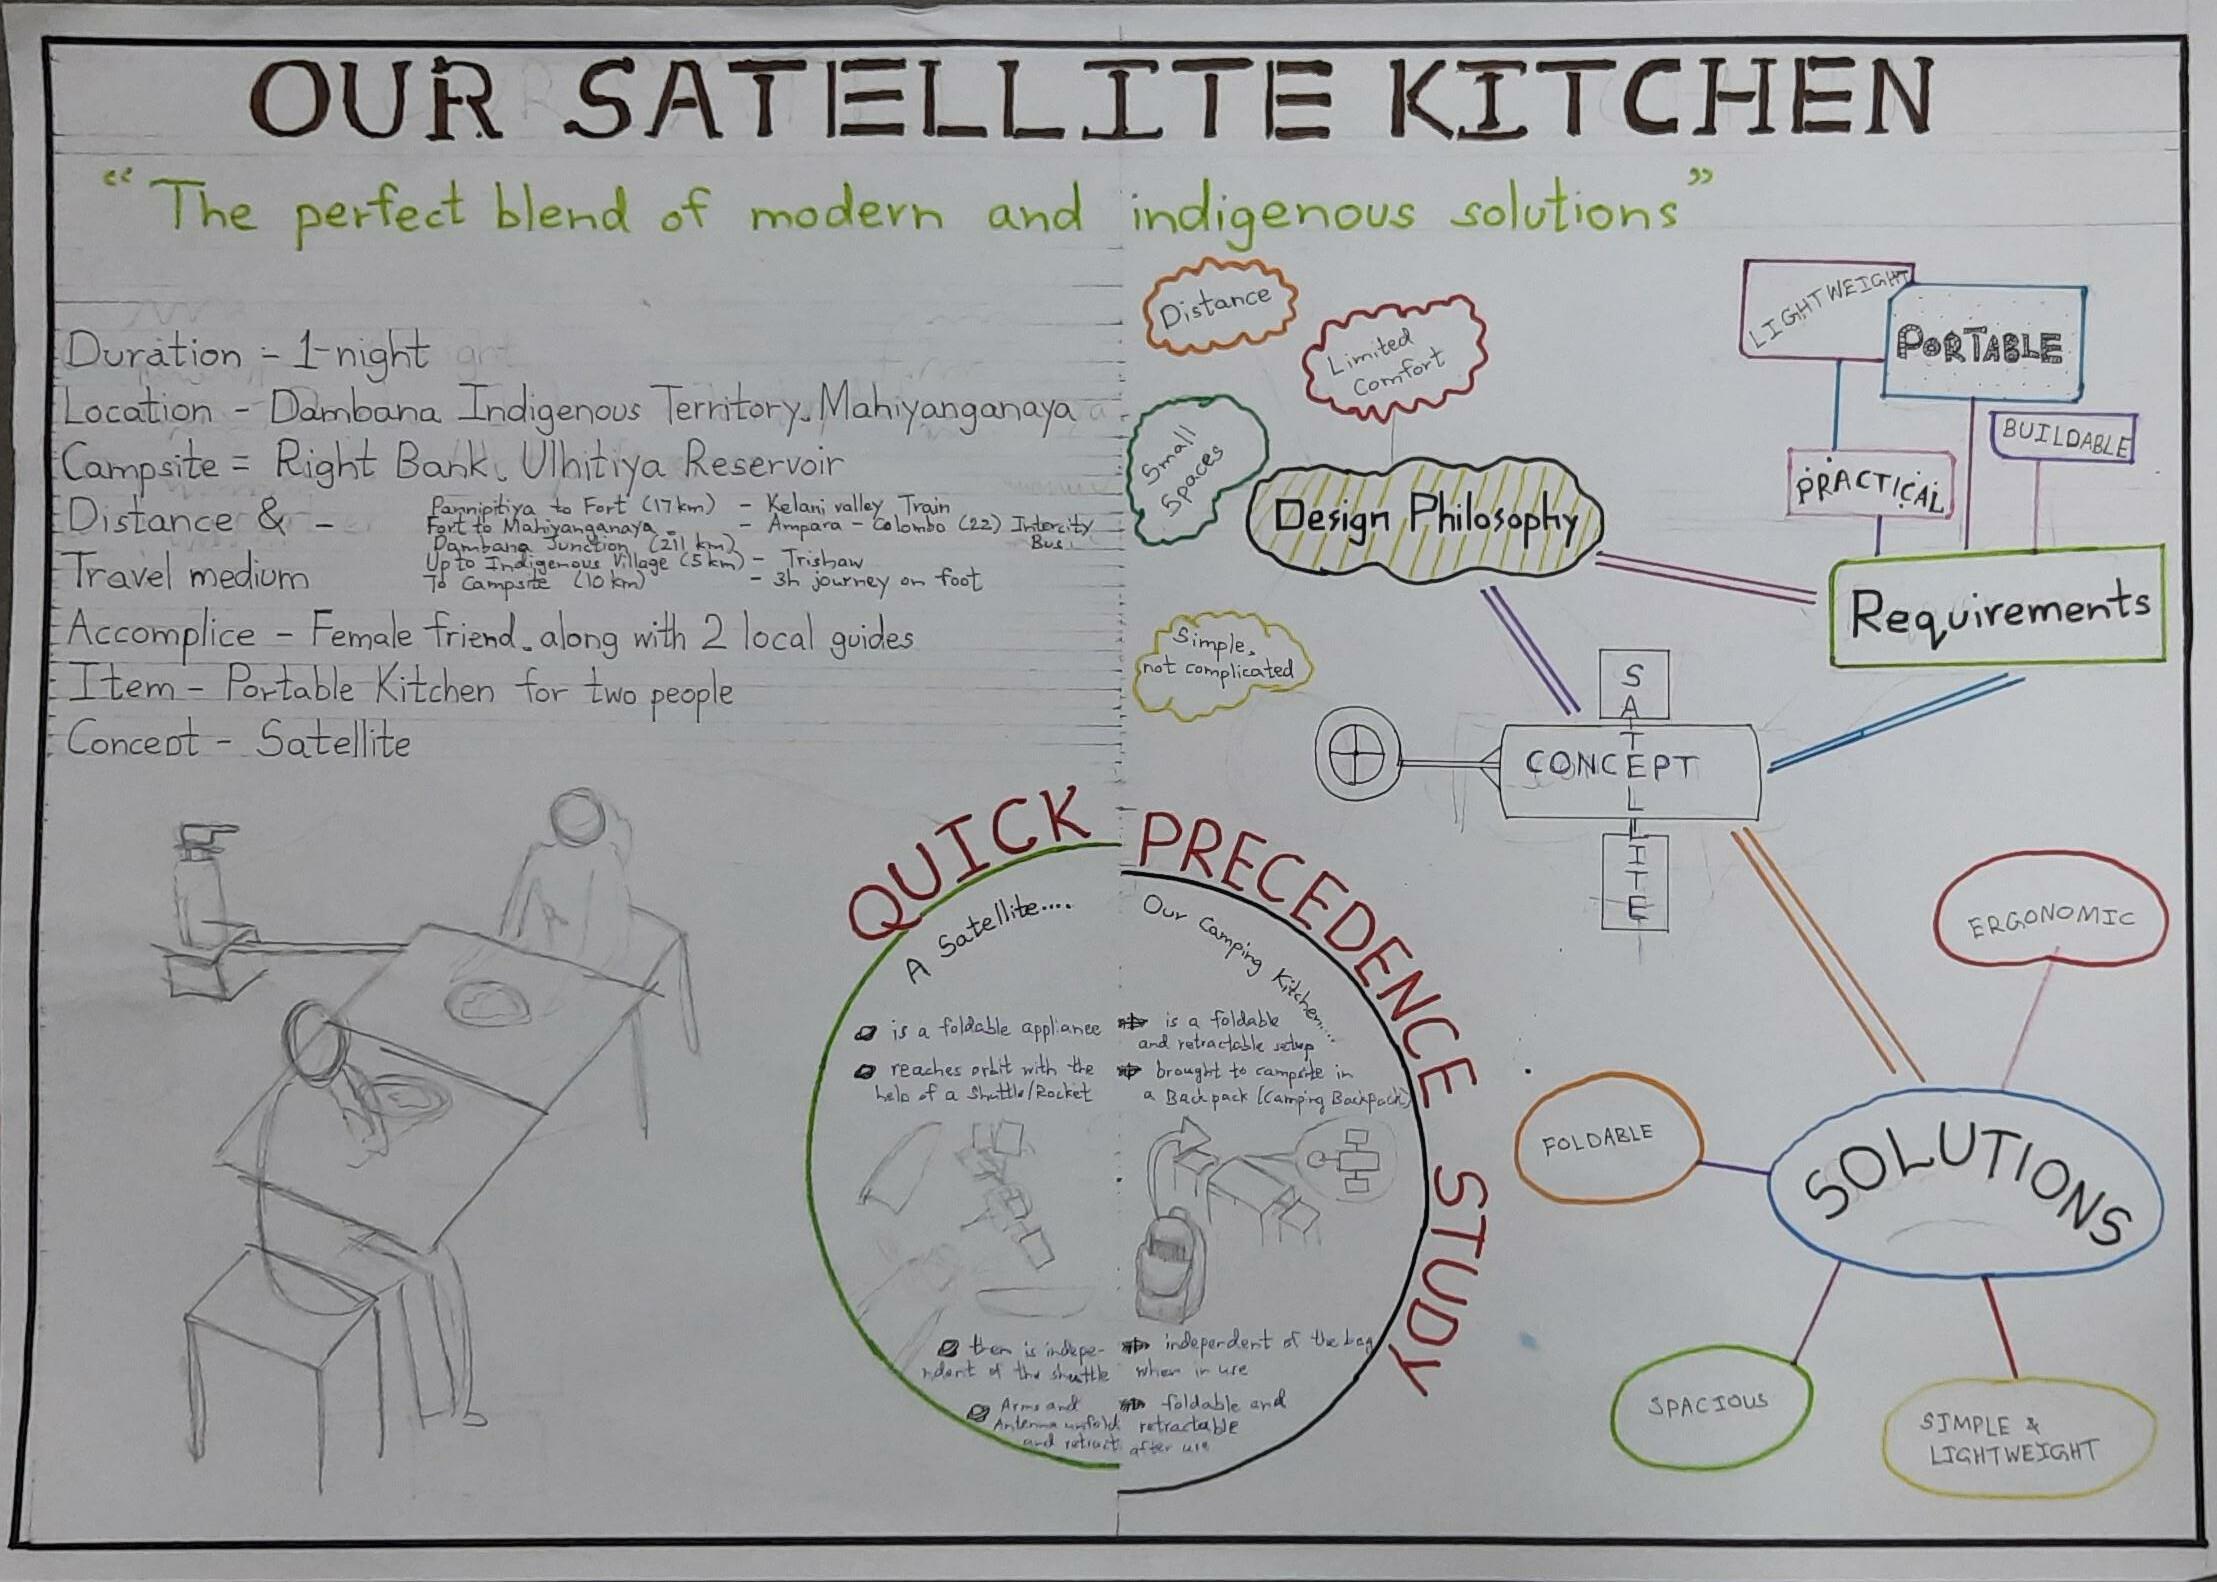 OUR SATELLITE KITCHEN
“The perfect blend of modern and indigenous solutions”
Duration - 1-night
Location - Dambana Indigenous Territory, Mahiyanganaya
Campsite = Right Bank, Ulhitiya Reservoir
Distance & -
Travel medium
Pannipitiya to Fort (17km) - Kelani valley Train
Fort to Mahiyanganaya - Ampara - Colombo (22) Intercity
Dambana Junction (211 km) Bus.
Up to Indigenous Village (5km) - Trishaw
To Campsite (10 km) - 3h journey on foot
Accomplice - Female friend, along with 2 local guides
Item - Portable Kitchen for two people
Concept - Satellite
Distance
Limited
Comfort
Small
Spaces
Design Philosophy
Simple,
not complicated
LIGHTWEIGHT
PORTABLE
BUILDABLE
PRACTICAL
Requirements
CONCEPT
SATELLITE
QUICK PRECEDENCE STUDY
A Satellite....
is a foldable appliance
reaches orbit with the
help of a Shuttle/Rocket
then is indepe-
ndent of the shuttle
Arms and
Antenna unfold
and retract
Our Camping Kitchen....
is a foldable
and retractable setup
brought to campsite in
a Backpack (Camping Backpack)
independent of the bag
when in use
foldable and
retractable
after use
ERGONOMIC
FOLDABLE
SOLUTIONS
SPACIOUS
SIMPLE &
LIGHTWEIGHT